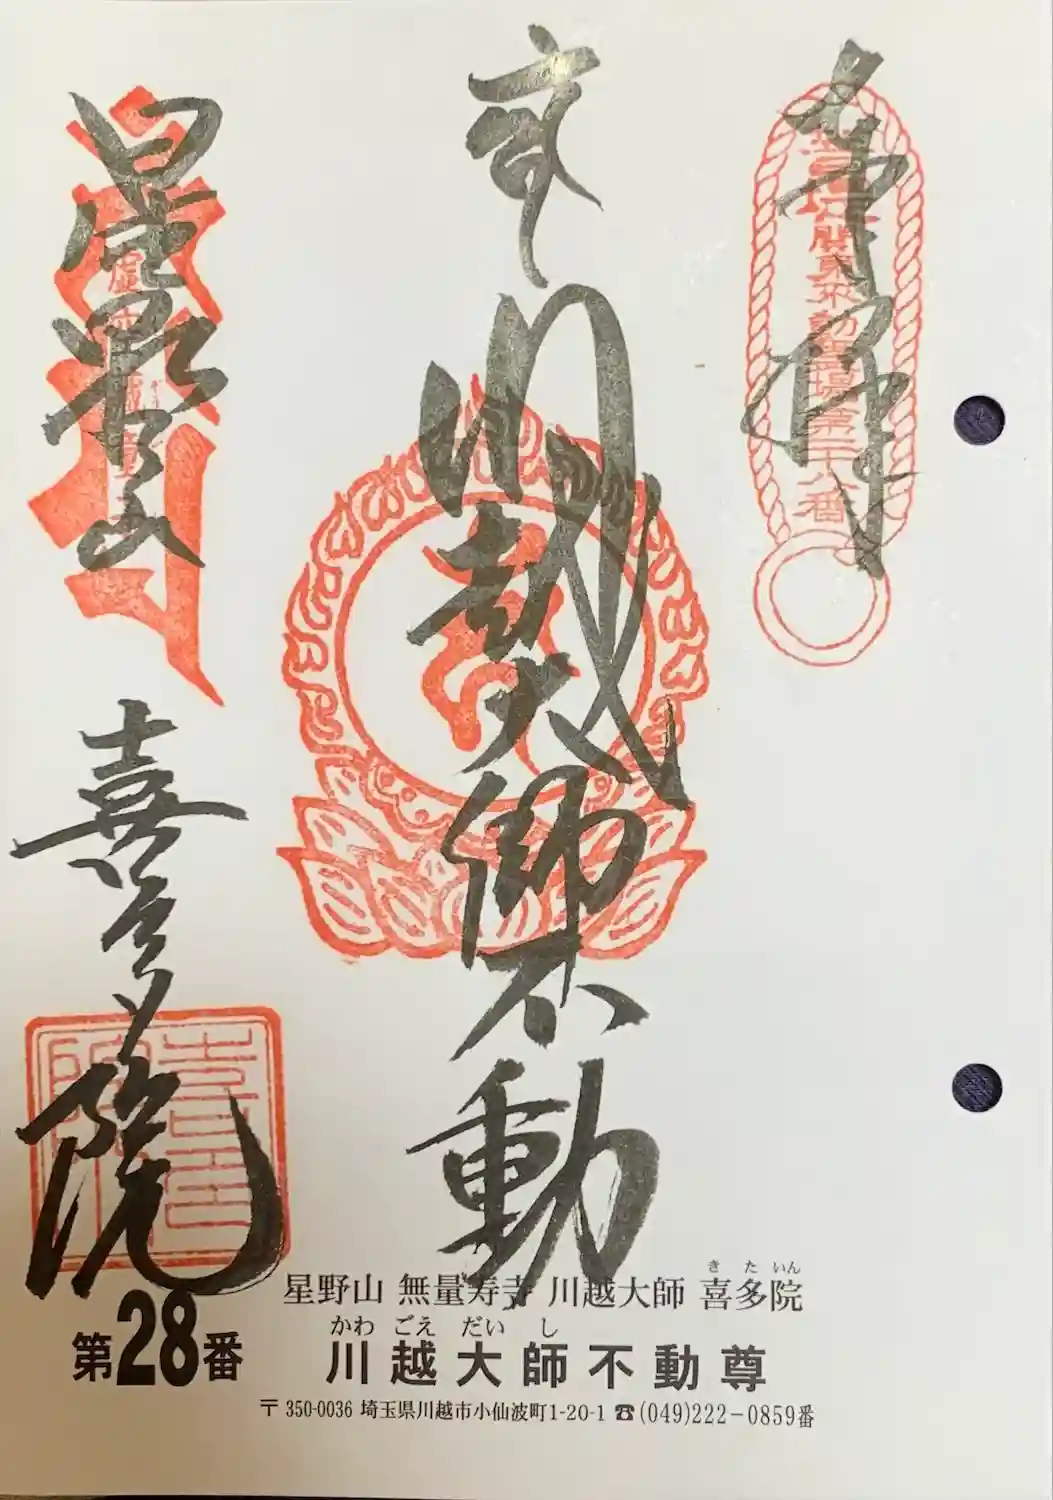 奉拝
関東不動霊場第二十八番
川越大師不動
星野山
喜多院
喜多院
きたいん
星野山 無量寿寺 川越大師 喜多院
かわ ごえ だい し
第28番 川越大師不動尊
〒350-0036 埼玉県川越市小仙波町1-20-1 ☎(049)222-0859番